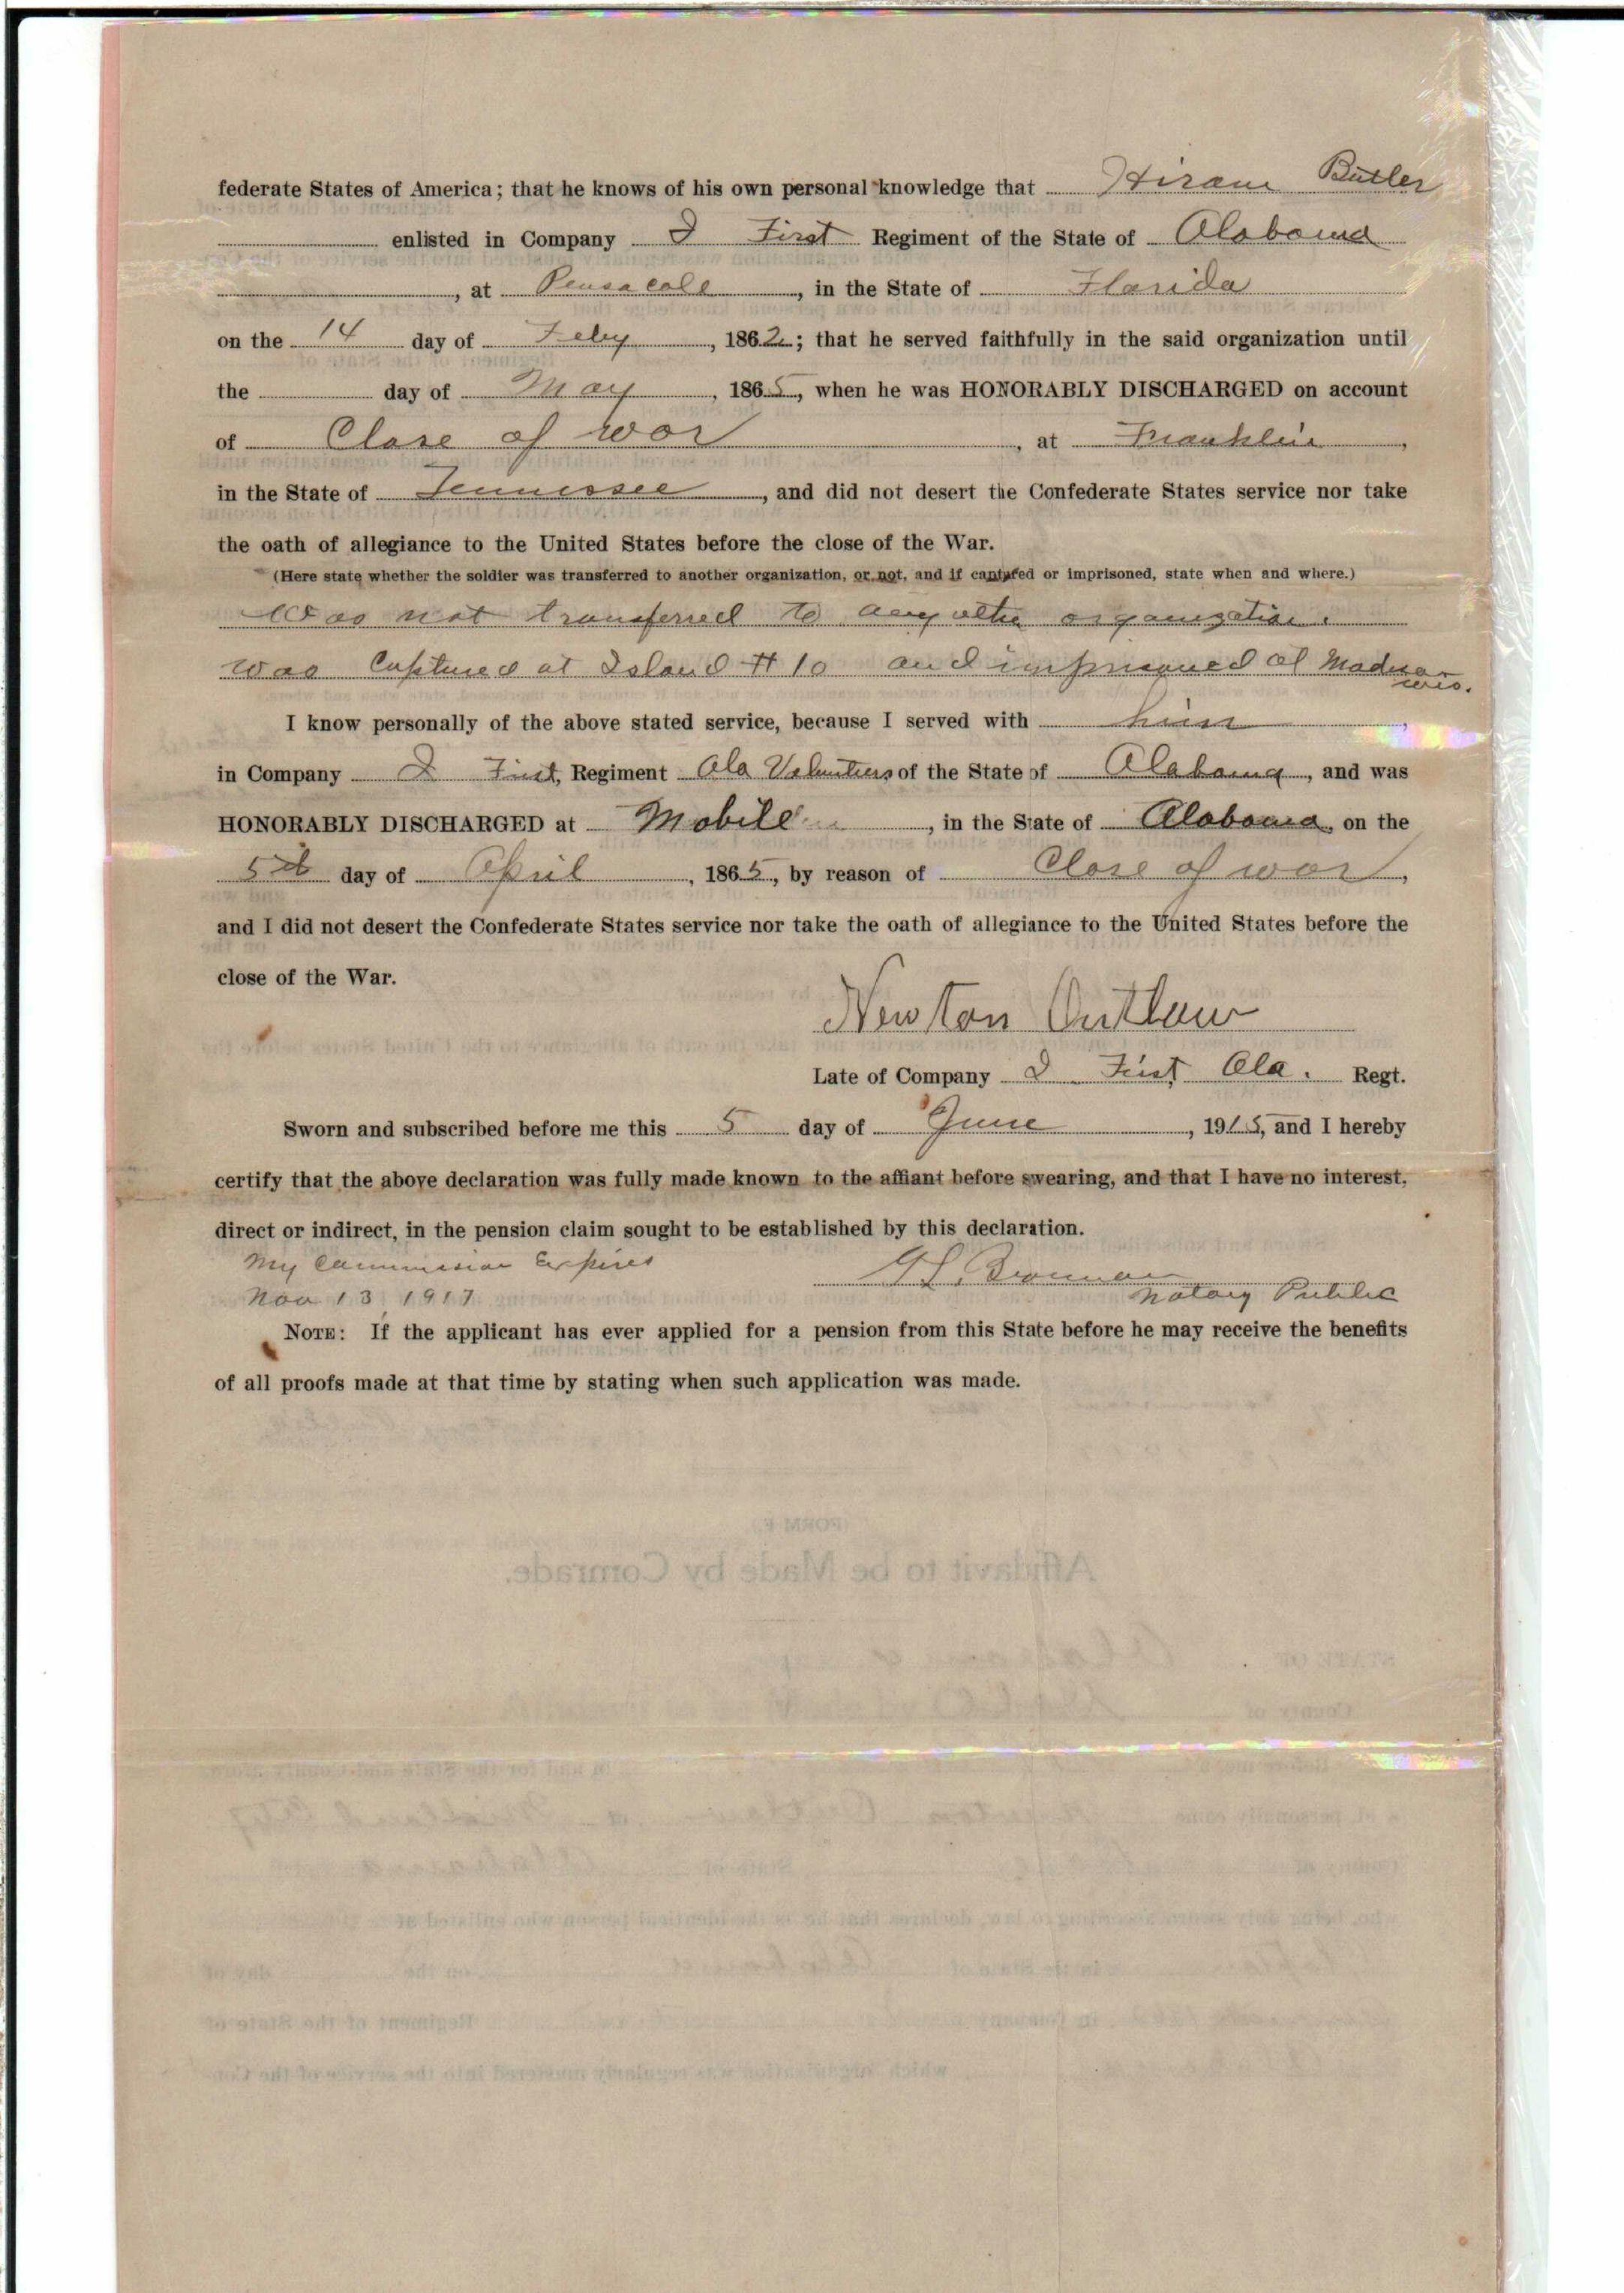 federate States of America; that he knows of his own personal knowledge that Hiram Butler
enlisted in Company I First Regiment of the State of Alabama
, at Pensacola, in the State of Florida
on the 14 day of Feby, 1862; that he served faithfully in the said organization until
the day of May, 1865, when he was HONORABLY DISCHARGED on account
of Close of war, at Franklin,
in the State of Tennessee, and did not desert the Confederate States service nor take
the oath of allegiance to the United States before the close of the War.
(Here state whether the soldier was transferred to another organization, or not, and if captured or imprisoned, state when and where.)
Was not transferred to any other organization.
was Captured at Island # 10 and imprisoned at Madison
wis.
I know personally of the above stated service, because I served with him,
in Company I First, Regiment Ala Volunteers of the State of Alabama, and was
HONORABLY DISCHARGED at Mobile, in the State of Alabama, on the
5th day of April, 1865, by reason of Close of war,
and I did not desert the Confederate States service nor take the oath of allegiance to the United States before the
close of the War.
Newton Outlaw
Late of Company I First Ala. Regt.
Sworn and subscribed before me this 5 day of June, 1915, and I hereby
certify that the above declaration was fully made known to the affiant before swearing, and that I have no interest,
direct or indirect, in the pension claim sought to be established by this declaration.
My Commission Expires
Nov 13, 1917
Notary Public
NOTE: If the applicant has ever applied for a pension from this State before he may receive the benefits
of all proofs made at that time by stating when such application was made.